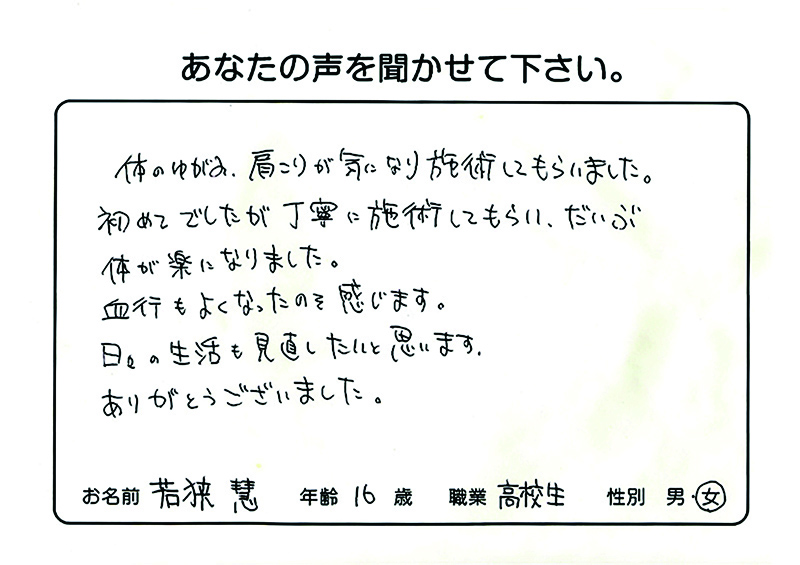 あなたの声を聞かせて下さい。
体のゆがみ、肩こりが気になり施術してもらいました。
初めてでしたが丁寧に施術してもらい、だいぶ
体が楽になりました。
血行もよくなったのを感じます。
日々の生活も見直したいと思います。
ありがとうございました。
お名前 若狭 慧 年齢 16 歳 職業 高校生 性別 男・女